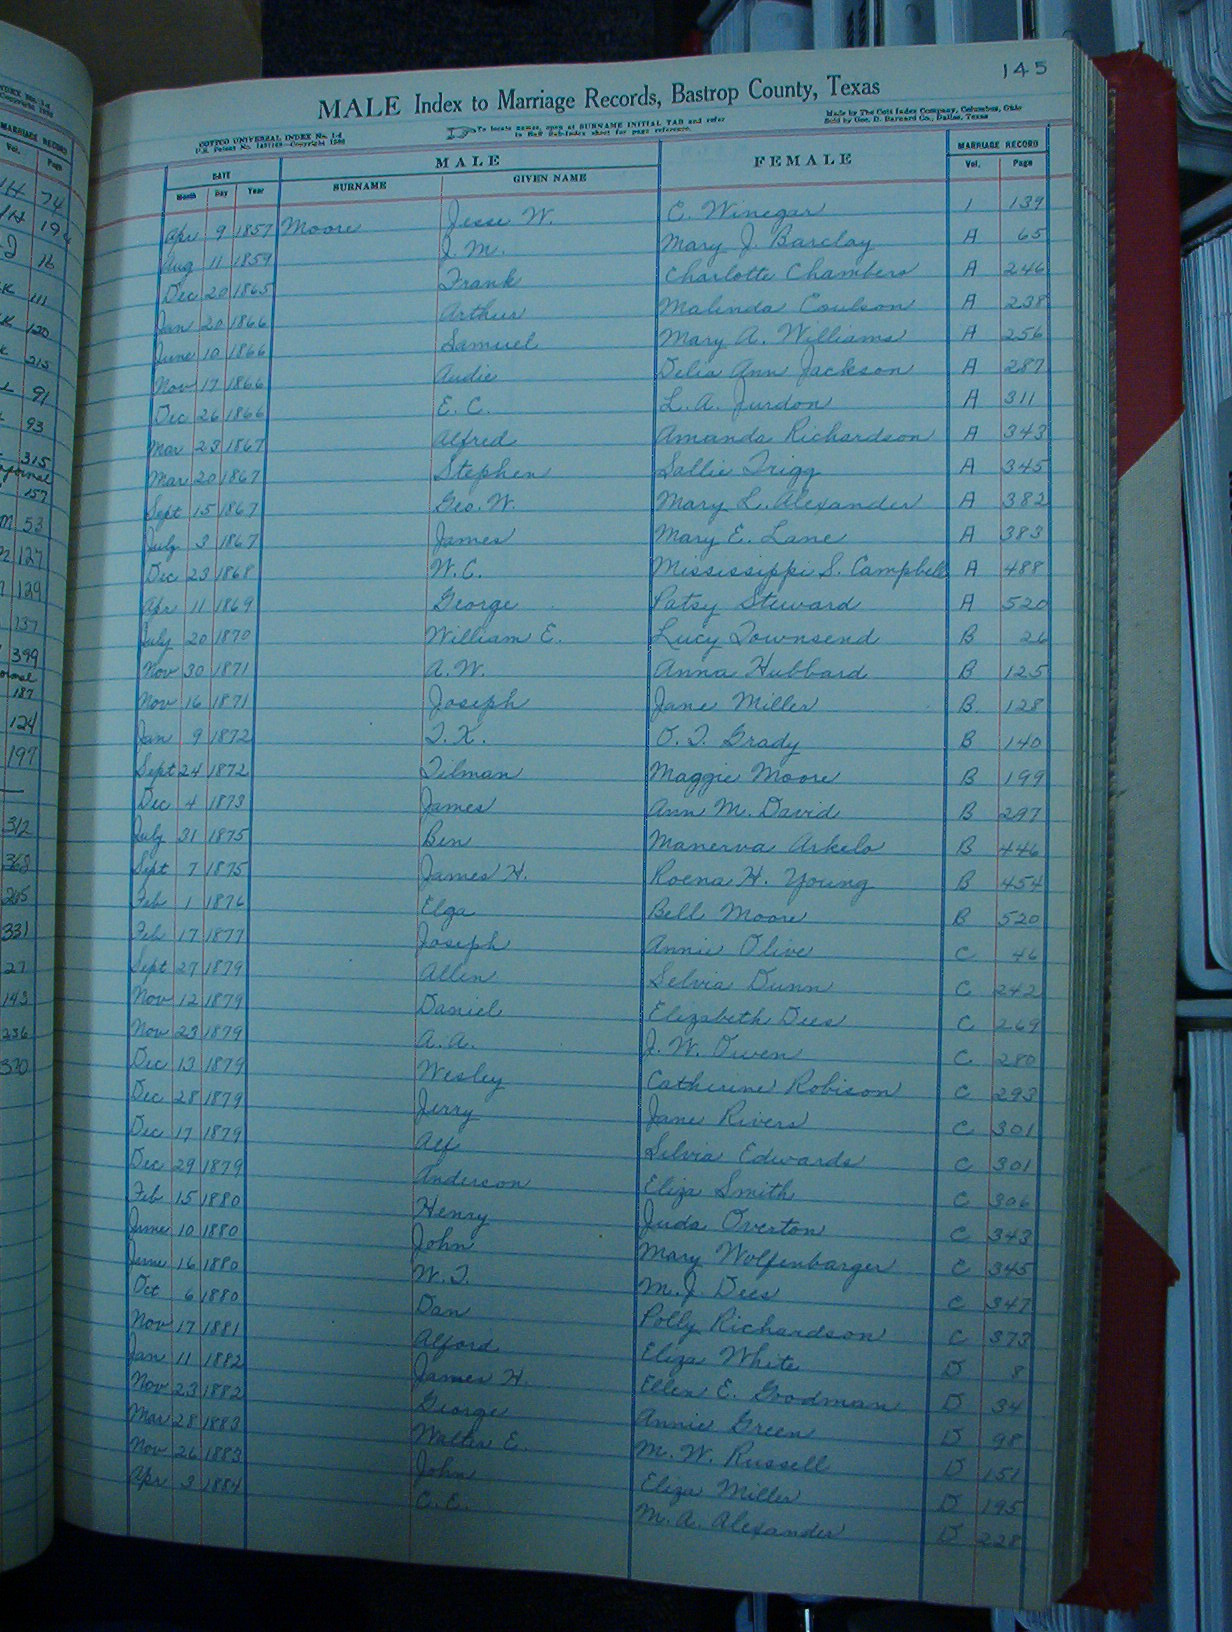 145
MALE Index to Marriage Records, Bastrop County, Texas
COTTCO UNIVERSAL INDEX No. 1-d
To locate names, open at SURNAME INITIAL TAB and refer
to Buff Sub-Index sheet for page reference.
Made by The Cott Index Company, Columbus, Ohio
Sold by Geo. D. Barnard Co., Dallas, Texas
DATE MALE FEMALE MARRIAGE RECORD
Month Day Year SURNAME GIVEN NAME Vol. Page
Apr 9 1857 Moore Jesse W. C. Winegar 1 139
Aug 11 1859 J. M. Mary J. Barclay A 65
Dec 20 1865 Frank Charlotte Chambers A 246
Jan 20 1866 Arthur Malinda Coulson A 238
June 10 1866 Samuel Mary A. Williams A 256
Nov 17 1866 Audie Delia Ann Jackson A 287
Dec 26 1866 E. C. L. A. Jurdon A 311
Mar 23 1867 Alfred Amanda Richardson A 343
Mar 20 1867 Stephen Sallie Trigg A 345
Sept 15 1867 Geo. W. Mary L. Alexander A 382
July 3 1867 James Mary E. Lane A 383
Dec 23 1868 W. C. Mississippi S. Campbell A 488
Apr 11 1869 George Patsy Steward A 520
July 20 1870 William E. Lucy Townsend B 26
Nov 30 1871 A. W. Anna Hubbard B 125
Nov 16 1871 Joseph Jane Miller B 128
Jan 9 1872 T. K. O. T. Grady B 140
Sept 24 1872 Tilman Maggie Moore B 199
Dec 4 1873 James Ann M. David B 297
July 31 1875 Ben Manerva Arkelo B 446
Sept 7 1875 James H. Roena H. Young B 454
Feb 1 1876 Elga Bell Moore B 520
Feb 17 1877 Joseph Annie Olive C 46
Sept 27 1879 Allen Selvia Dunn C 242
Nov 12 1879 Daniel Elizabeth Dees C 269
Nov 23 1879 A. A. J. W. Owen C 280
Dec 13 1879 Wesley Catherine Robison C 293
Dec 28 1879 Jerry Jane Rivers C 301
Dec 17 1879 Alf Selvia Edwards C 301
Dec 29 1879 Anderson Eliza Smith C 306
Feb 15 1880 Henry Juda Overton C 343
June 10 1880 John Mary Wolfenbarger C 345
June 16 1880 W. T. M. J. Dees C 347
Oct 6 1880 Dan Polly Richardson C 373
Nov 17 1881 Alford Eliza White D 8
Jan 11 1882 James H. Ellen E. Goodman D 34
Nov 23 1882 George Annie Green D 98
Mar 28 1883 Walter E. M. W. Russell D 151
Nov 26 1883 John Eliza Miller D 195
Apr 3 1884 C. E. M. A. Alexander D 228